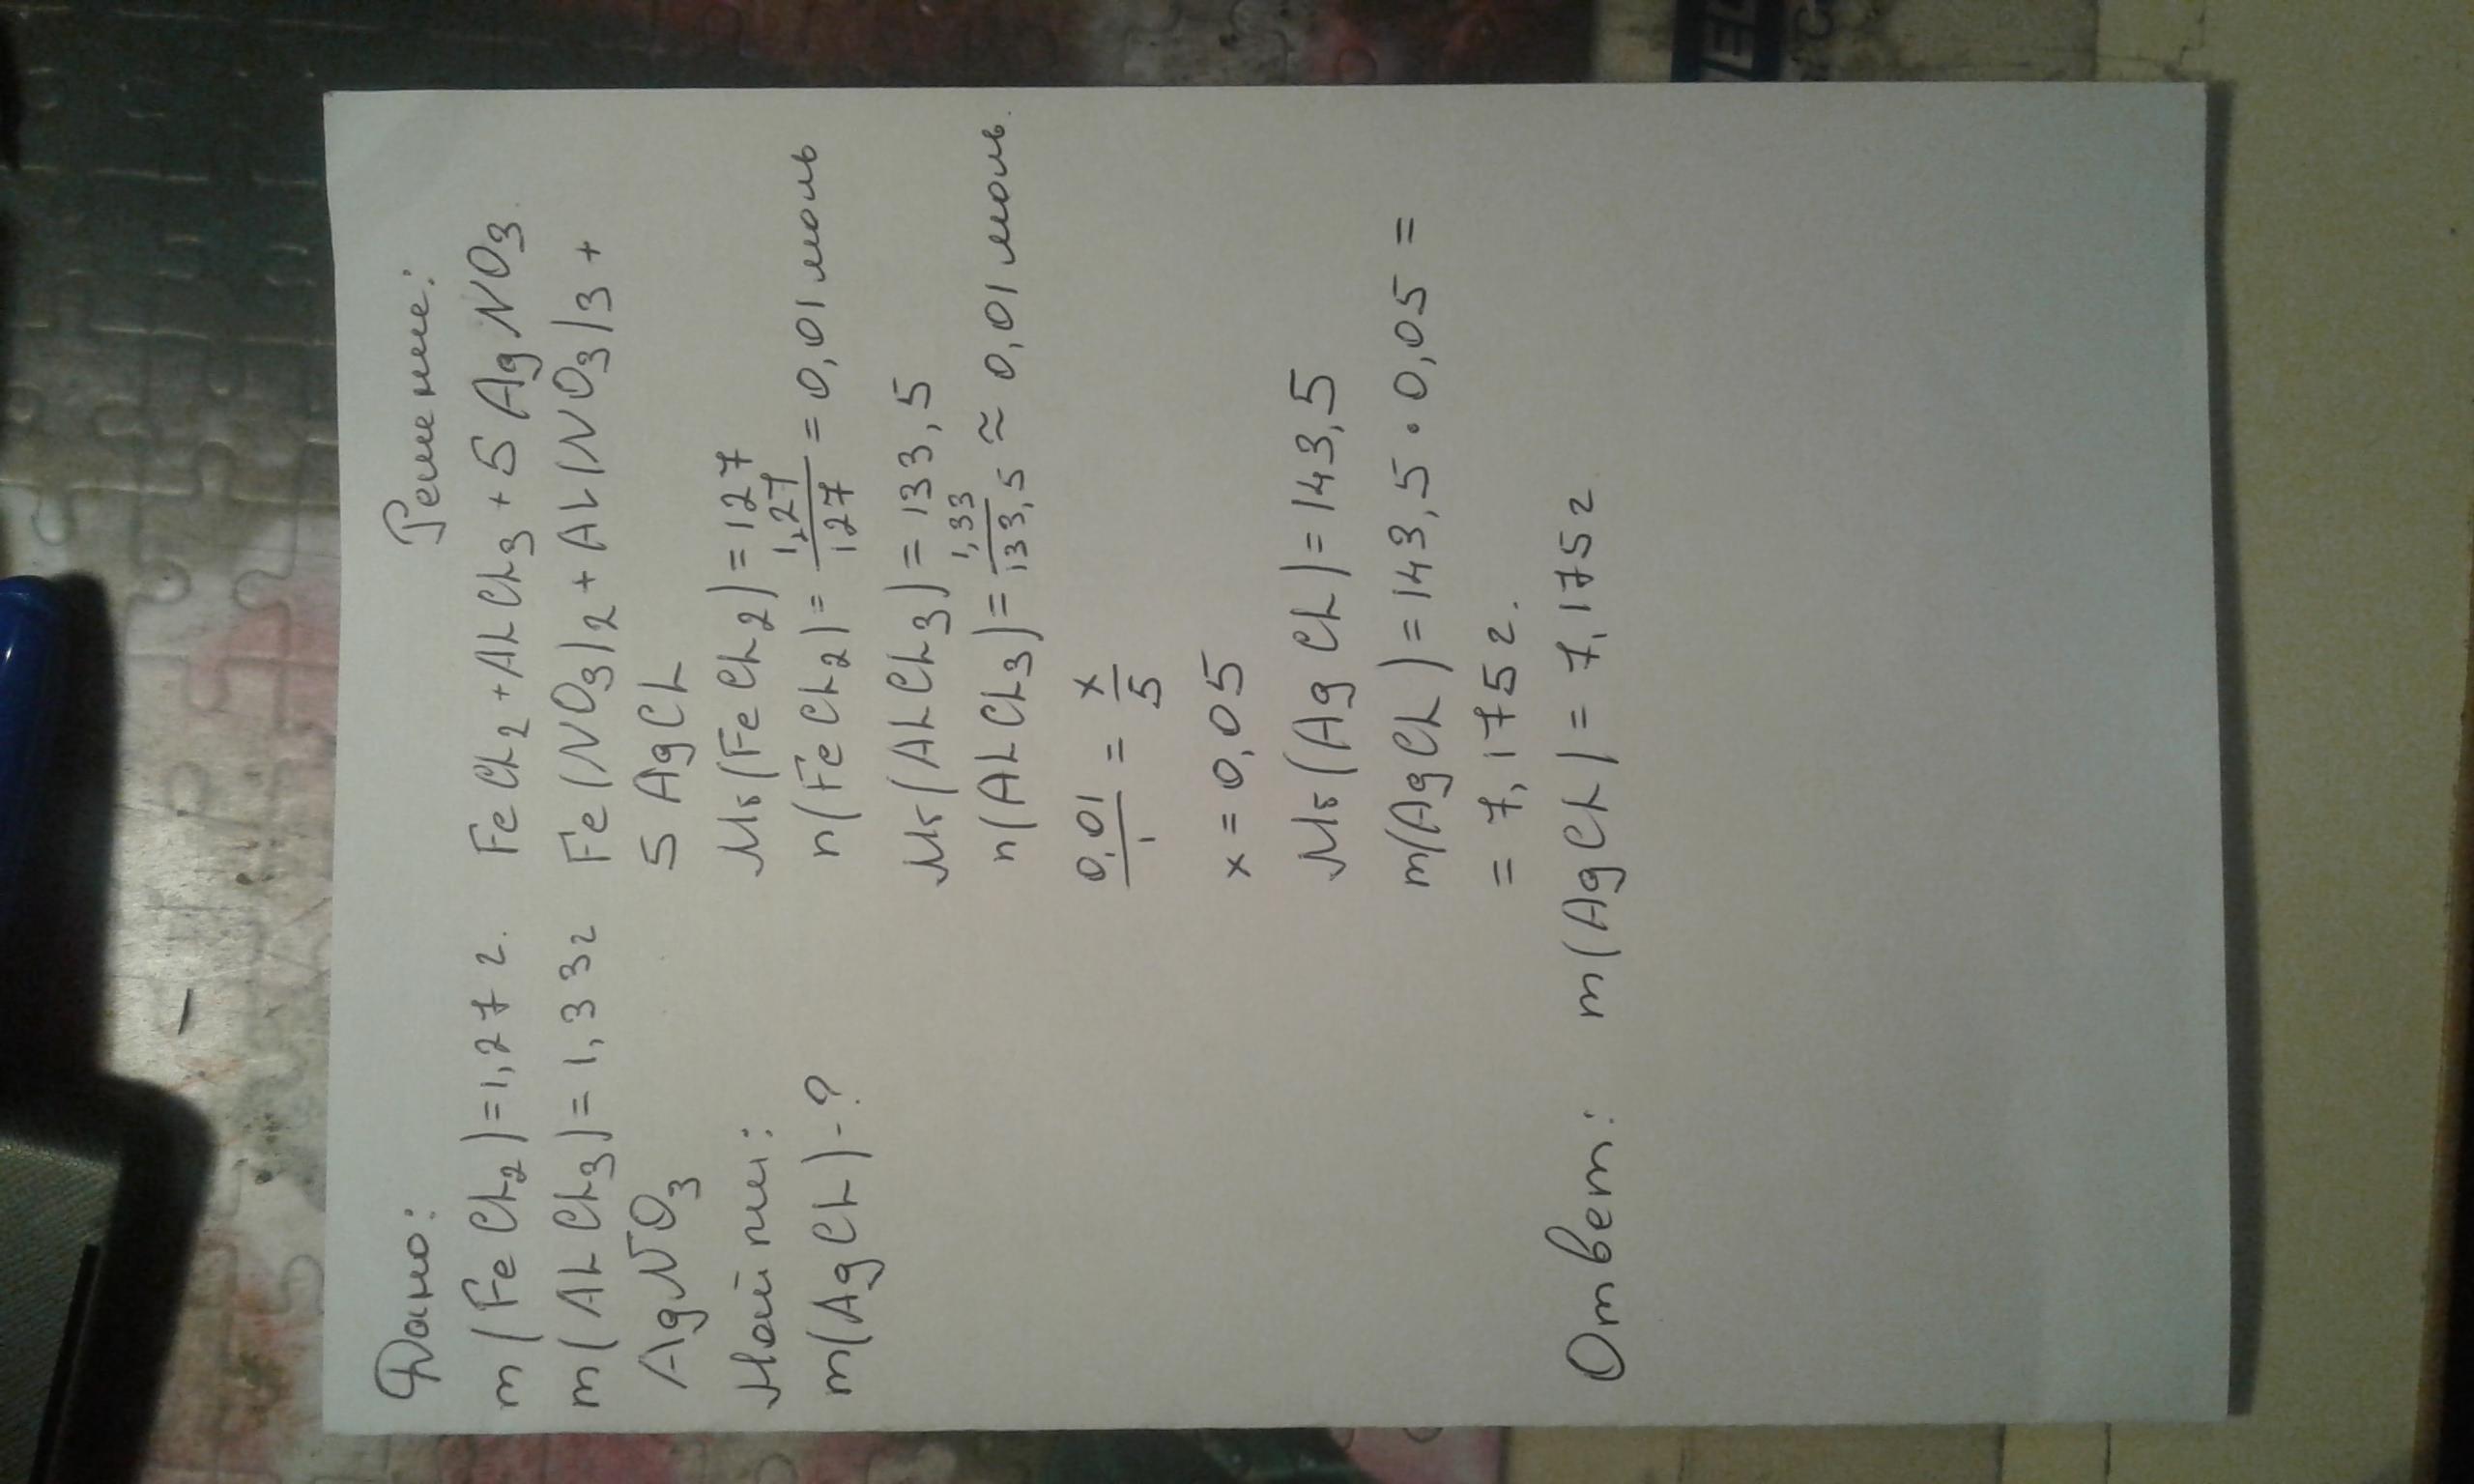 Дано:
m(FeCl2)=1,27 г.
m(AlCl3)=1,33 г
AgNO3
Найти:
m(AgCl)-?
Решение:
FeCl2+AlCl3+5AgNO3
Fe(NO3)2+Al(NO3)3+
5AgCl
Mr(FeCl2)=127
n(FeCl2)=1,27/127=0,01 моль
Mr(AlCl3)=133,5
n(AlCl3)=1,33/133,5≈0,01 моль.
0,01/1=x/5
x=0,05
Mr(AgCl)=143,5
m(AgCl)=143,5·0,05=
=7,175 г.
Ответ: m(AgCl)=7,175 г